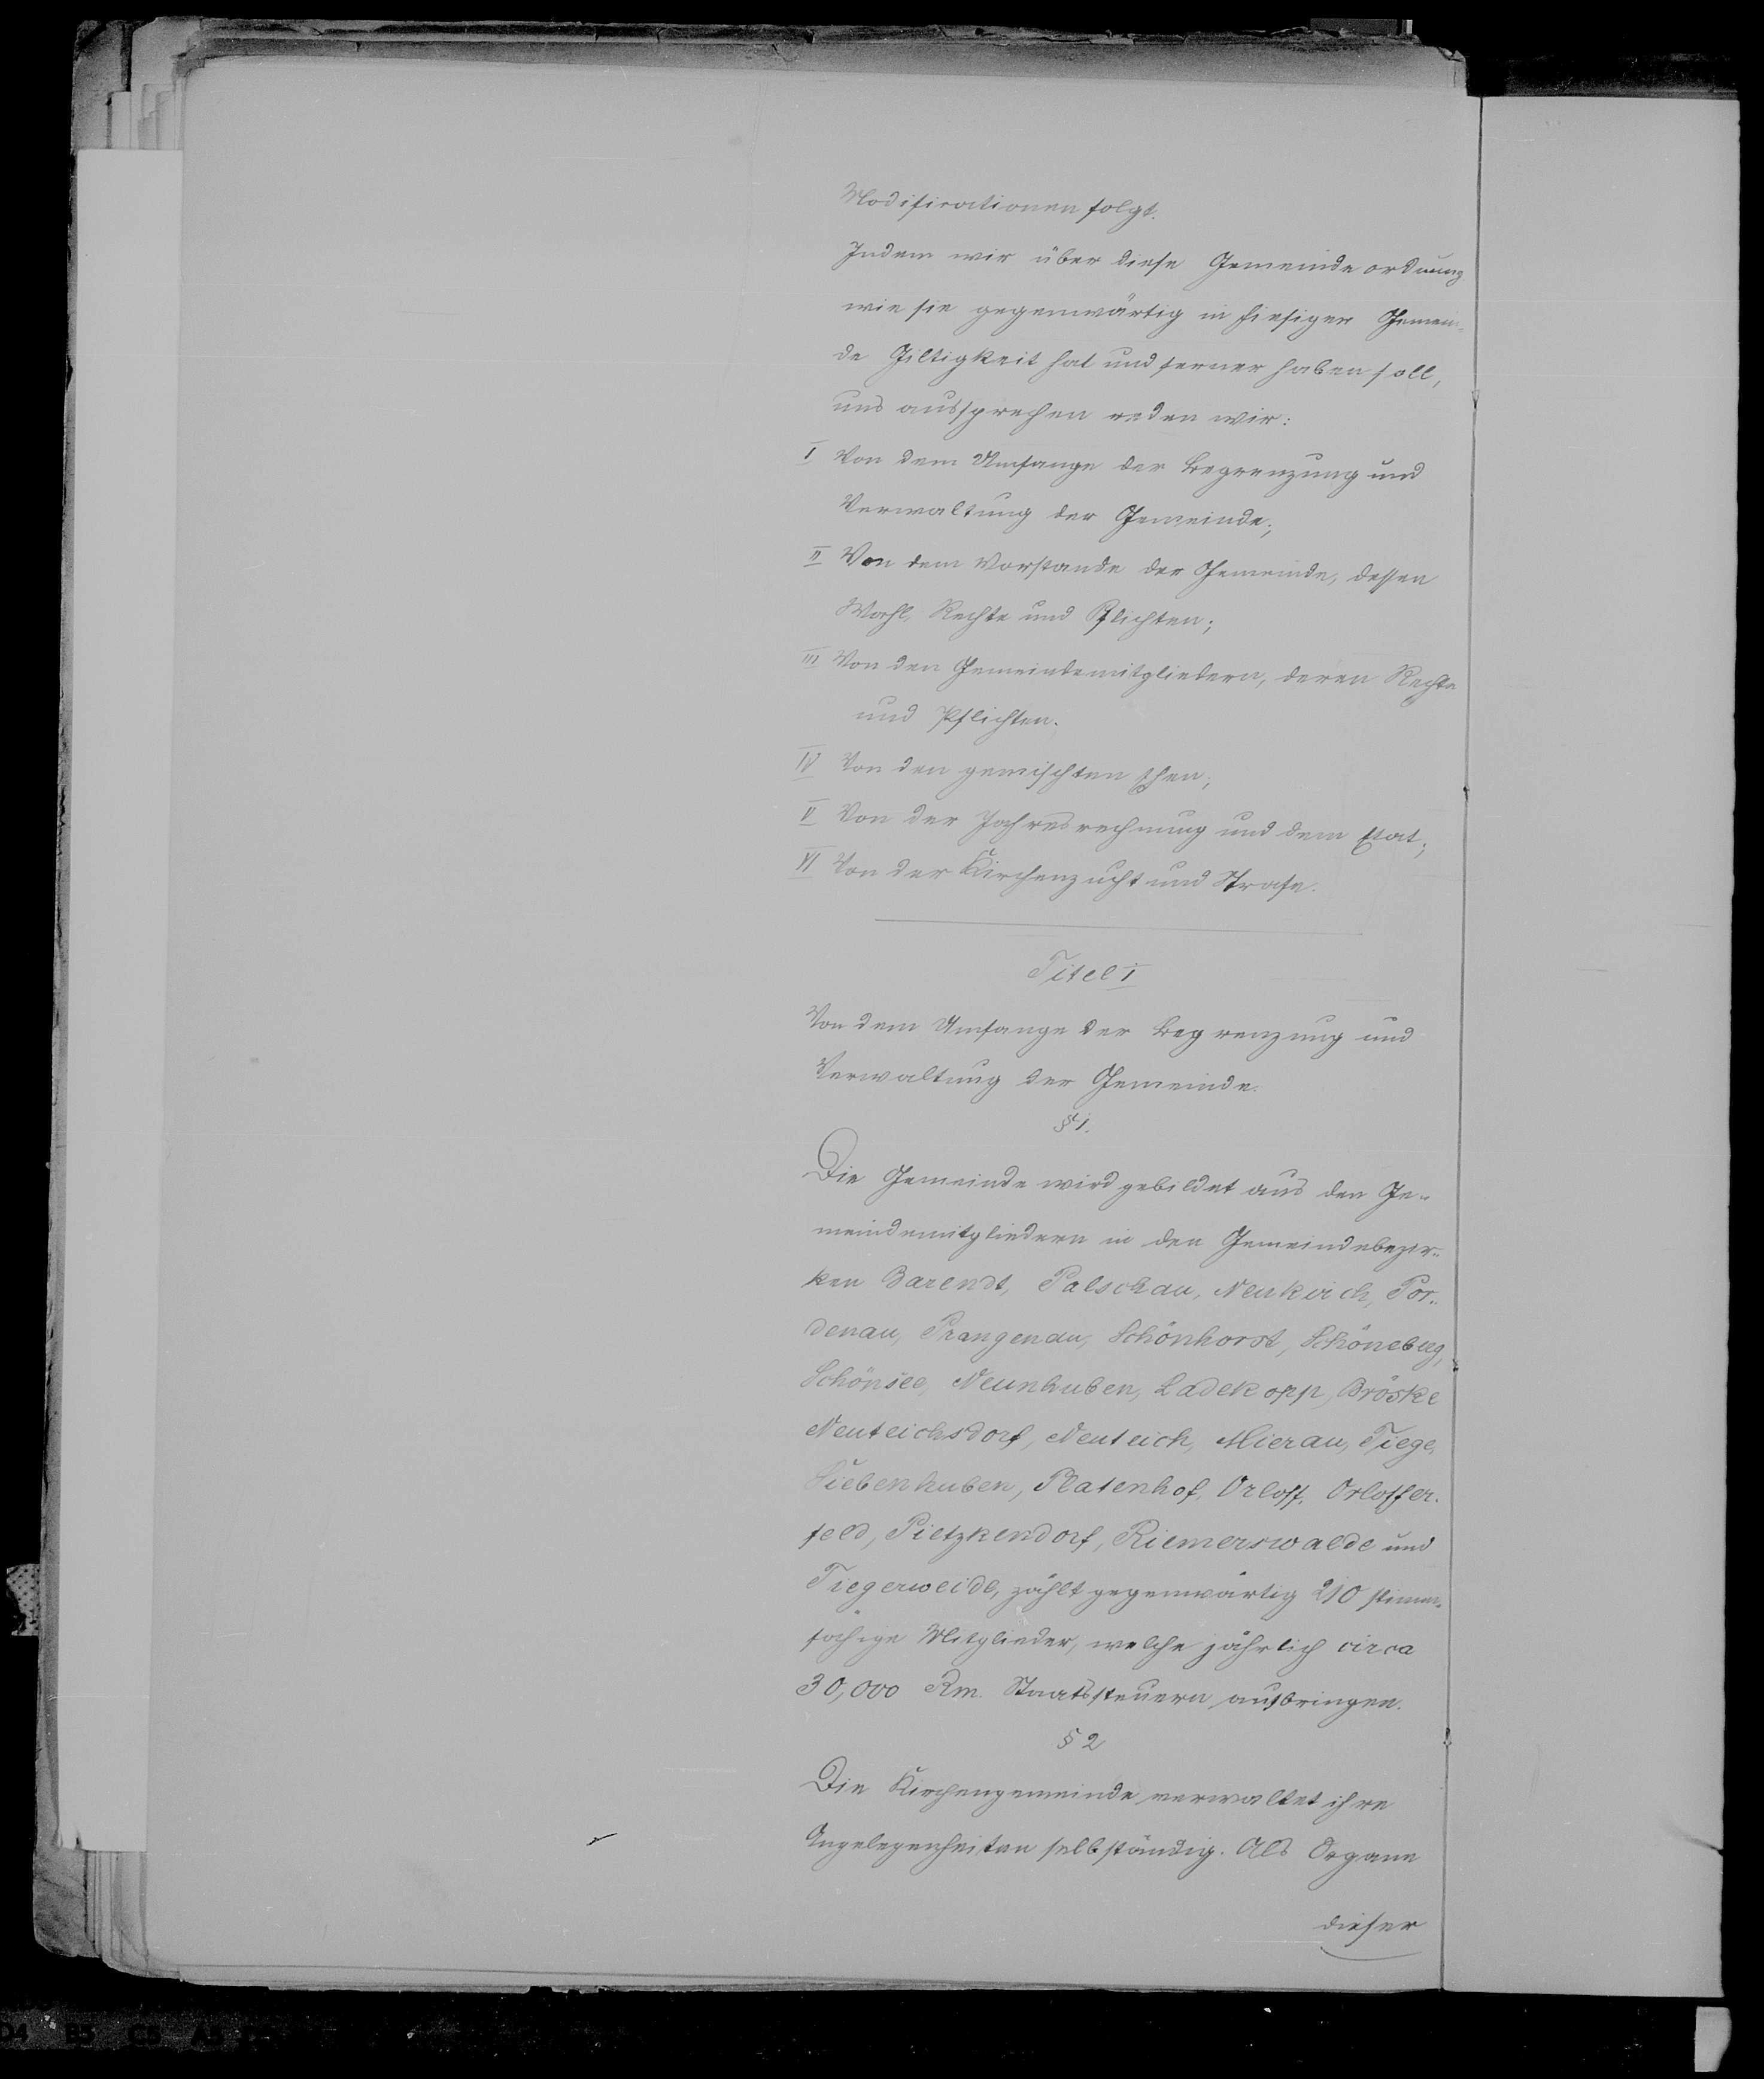 Modificationen folgt.
Indem wir über diese Gemeindeordnung
wie sie gegenwärtig in hiesiger Gemein-
de Giltigkeit hat und ferner haben soll,
uns aussprechen reden wir:
I Von dem Umfange der Begrenzung und
Verwaltung der Gemeinde;
II Von dem Vorstande der Gemeinde, dessen
Wahl, Rechte und Pflichten;
III Von den Gemeindemitgliedern, deren Rechte
und Pflichten.
IV Von den gemischten Ehen;
V Von der Jahresrechnung und dem Etat;
VI Von der Kirchenzucht und Strafe.
Titel I
Von dem Umfange der Begrenzung und
Verwaltung der Gemeinde.
§ 1.
Die Gemeinde wird gebildet aus den Ge-
meindemitgliedern in den Gemeindebezir-
ken Barendt, Palschau, Neukirch, Por-
denau, Prangenau, Schönhorst, Schöneberg,
Schönsee, Neunhuben, Ladekopp, Bröske
Neuteichsdorf, Neuteich, Mierau, Tiege,
Siebenhuben, Platenhof, Orloff, Orloffer-
feld, Pietzkendorf, Riemerswalde und
Tiegerweide, zählt gegenwärtig 210 stimm-
fähige Mitglieder, welche jährlich circa
30,000 Rm. Staatssteuern aufbringen.
§ 2
Die Kirchengemeinde verwaltet ihre
Angelegenheiten selbständig. Als Organe
dieser